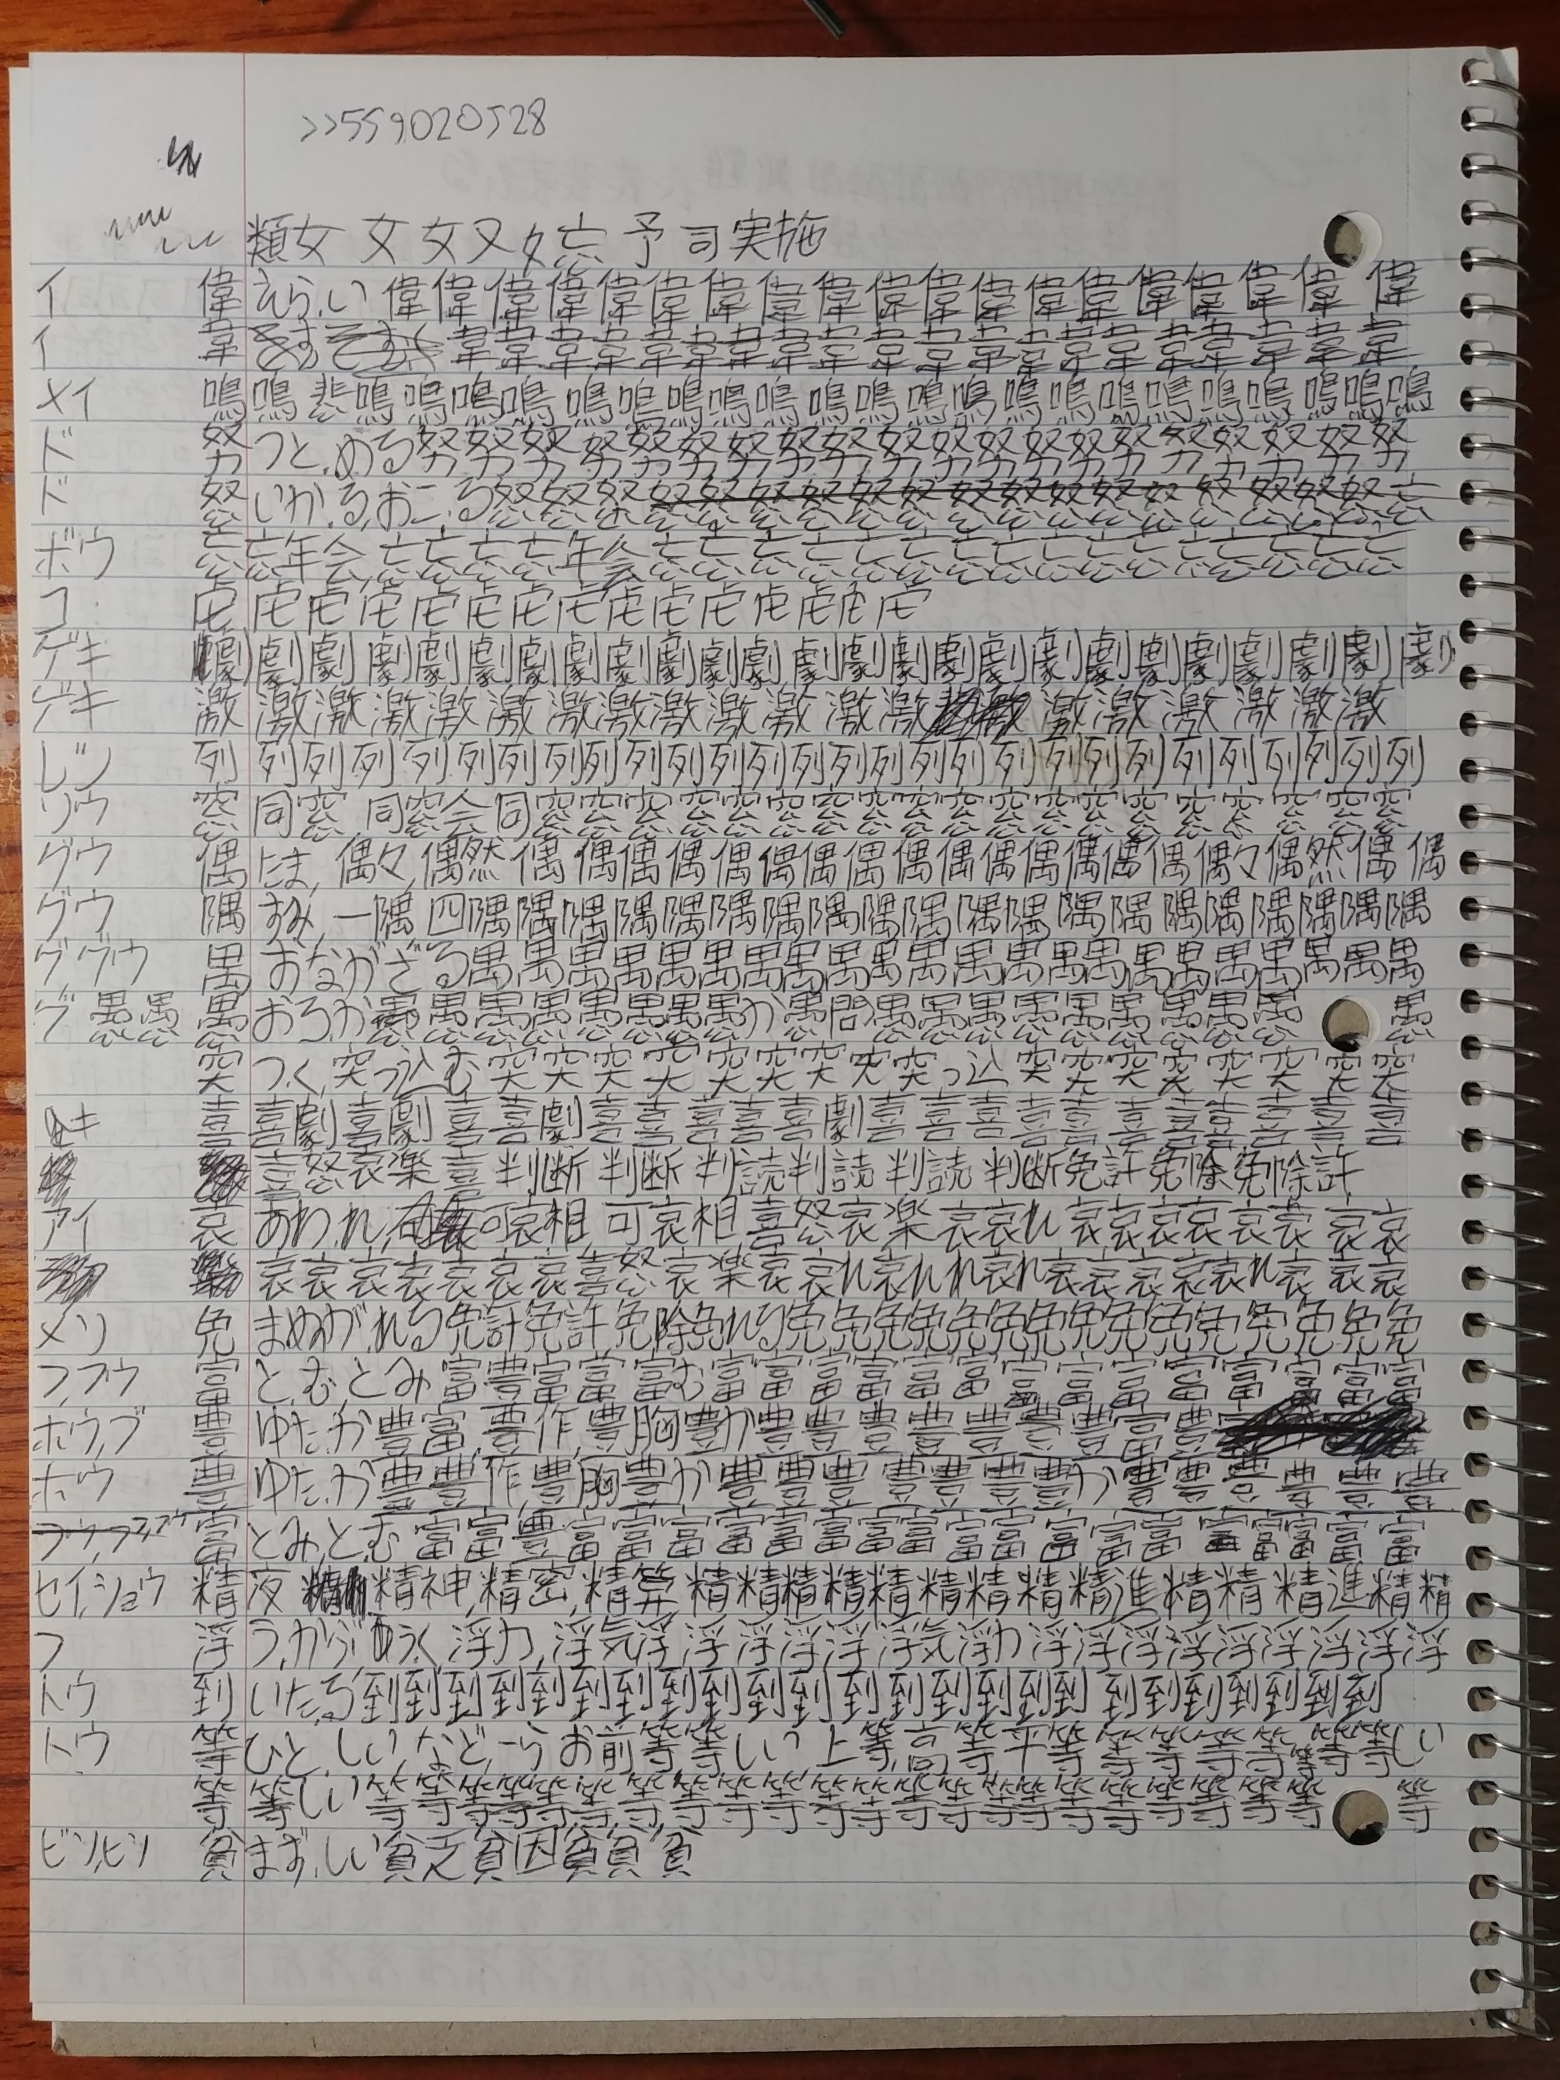 >>559020528
類女 女 女 又 女 忘 予 司 実施
イ 偉 えら,い 偉 偉 偉 偉 偉 偉 偉 偉 偉 偉 偉 偉 偉 偉 偉 偉 偉 偉 偉
イ 韋 韋 韋 韋 韋 韋 韋 韋 韋 韋 韋 韋 韋 韋 韋 韋 韋 韋 韋 韋
メイ 鳴 鳴 悲鳴 鳴 鳴 鳴 鳴 鳴 鳴 鳴 鳴 鳴 鳴 鳴 鳴 鳴 鳴 鳴 鳴 鳴 鳴 鳴 鳴 鳴
ド 努 つと,める 努 努 努 努 努 努 努 努 努 努 努 努 努 努 努 努 努 努 努 努
ド 怒 いか,る,おこ,る 怒 怒 怒 怒 怒 怒 怒 怒 怒 怒 怒 怒 怒 怒 怒 怒 怒 怒 忘
ボウ 忘 忘年会 忘 忘 忘 忘年会 忘 忘 忘 忘 忘 忘 忘 忘 忘 忘 忘 忘
コ 虎 虎 虎 虎 虎 虎 虎 虎 虎 虎 虎 虎 虎 虎 虎
ゲキ 劇 劇 劇 劇 劇 劇 劇 劇 劇 劇 劇 劇 劇 劇 劇 劇 劇 劇 劇 劇 劇 劇 劇 劇
ゲキ 激 激 激 激 激 激 激 激 激 激 激 激 激 激 激 激 激 激 激
レツ 列 列 列 列 列 列 列 列 列 列 列 列 列 列 列 列 列 列 列 列 列 列 列 列 列 列
ソウ 窓 同窓 同窓会 同窓 窓 窓 窓 窓 窓 窓 窓 窓 窓 窓 窓 窓 窓 窓 窓 窓 窓
グウ 偶 たま, 偶々,偶然 偶 偶 偶 偶 偶 偶 偶 偶 偶 偶 偶 偶 偶 偶 偶々 偶然 偶 偶
グウ 隅 すみ, 一隅 四隅 隅 隅 隅 隅 隅 隅 隅 隅 隅 隅 隅 隅 隅 隅 隅 隅 隅 隅 隅
グ グウ 禺 おながざる 禺 禺 禺 禺 禺 禺 禺 禺 禺 禺 禺 禺 禺 禺 禺 禺 禺 禺 禺 禺
グ 愚 愚 愚 おろ,か 愚 愚 愚 愚 愚 愚 愚 愚か 愚問 愚 愚 愚 愚 愚 愚 愚 愚 愚 愚
突 つ,く,突っ込む 突 突 突 突 突 突 突 突 突っ込 突 突 突 突 突 突 突 突
キ 喜 喜劇 喜劇 喜 喜劇 喜 喜 喜 喜 喜劇 喜 喜 喜 喜 喜 喜 喜 喜 喜 喜 喜
喜怒哀楽 喜 判断 判断 判読 判読 判読 判断 免許 免除 免除 許
アイ 哀 あわ,れ, 可哀相,可哀相 喜怒哀楽 哀 哀れ 哀 哀 哀 哀 哀 哀 哀 哀
哀 哀 哀 哀 哀 哀 哀 喜怒哀楽 哀 哀れ 哀れ れ 哀れ 哀 哀 哀 哀 哀れ 哀 哀 哀
メン 免 まぬが,れる 免許 免許 免除 免れる 免 免 免 免 免 免 免 免 免 免 免 免 免 免 免
フ,フウ 富 と,む,とみ 富豊 富 富 富む 富 富 富 富 富 富 富 富 富 富 富 富 富 富
ホウ,ブ 豊 ゆた,か 豊富,豊作,豊胸 豊か 豊 豊 豊 豊 豊 豊 豊 豊 富 豊
ホウ 豊 ゆた,か 豊 豊作,豊胸 豊か 豊 豊 豊 豊 豊 豊 豊か 豊 豊 豊 豊 豊 豊
富 とみ,と,む 富 富豊 富 富 富 富 富 富 富 富 富 富 富 富 富 富 富 富
セイ,ショウ 精 夜 精神,精密,精算 精 精 精 精 精 精 精 精 精進 精 精 精進 精 精
フ 浮 う,かぶ, うく 浮力,浮気 浮 浮 浮 浮 浮 浮気 浮力 浮 浮 浮 浮 浮 浮 浮 浮
トウ 到 いた,る 到 到 到 到 到 到 到 到 到 到 到 到 到 到 到 到 到 到 到 到 到 到 到
トウ 等 ひと,しい,など,ら お前等 等しい 上等,高等 平等 等 等 等 等 等 等 等しい
等 等しい 等 等 等 等 等 等 等 等 等 等 等 等 等 等 等 等 等 等 等 等 等
ビン,ヒン 貧 まず,しい 貧乏 貧困 貧 貧 貧